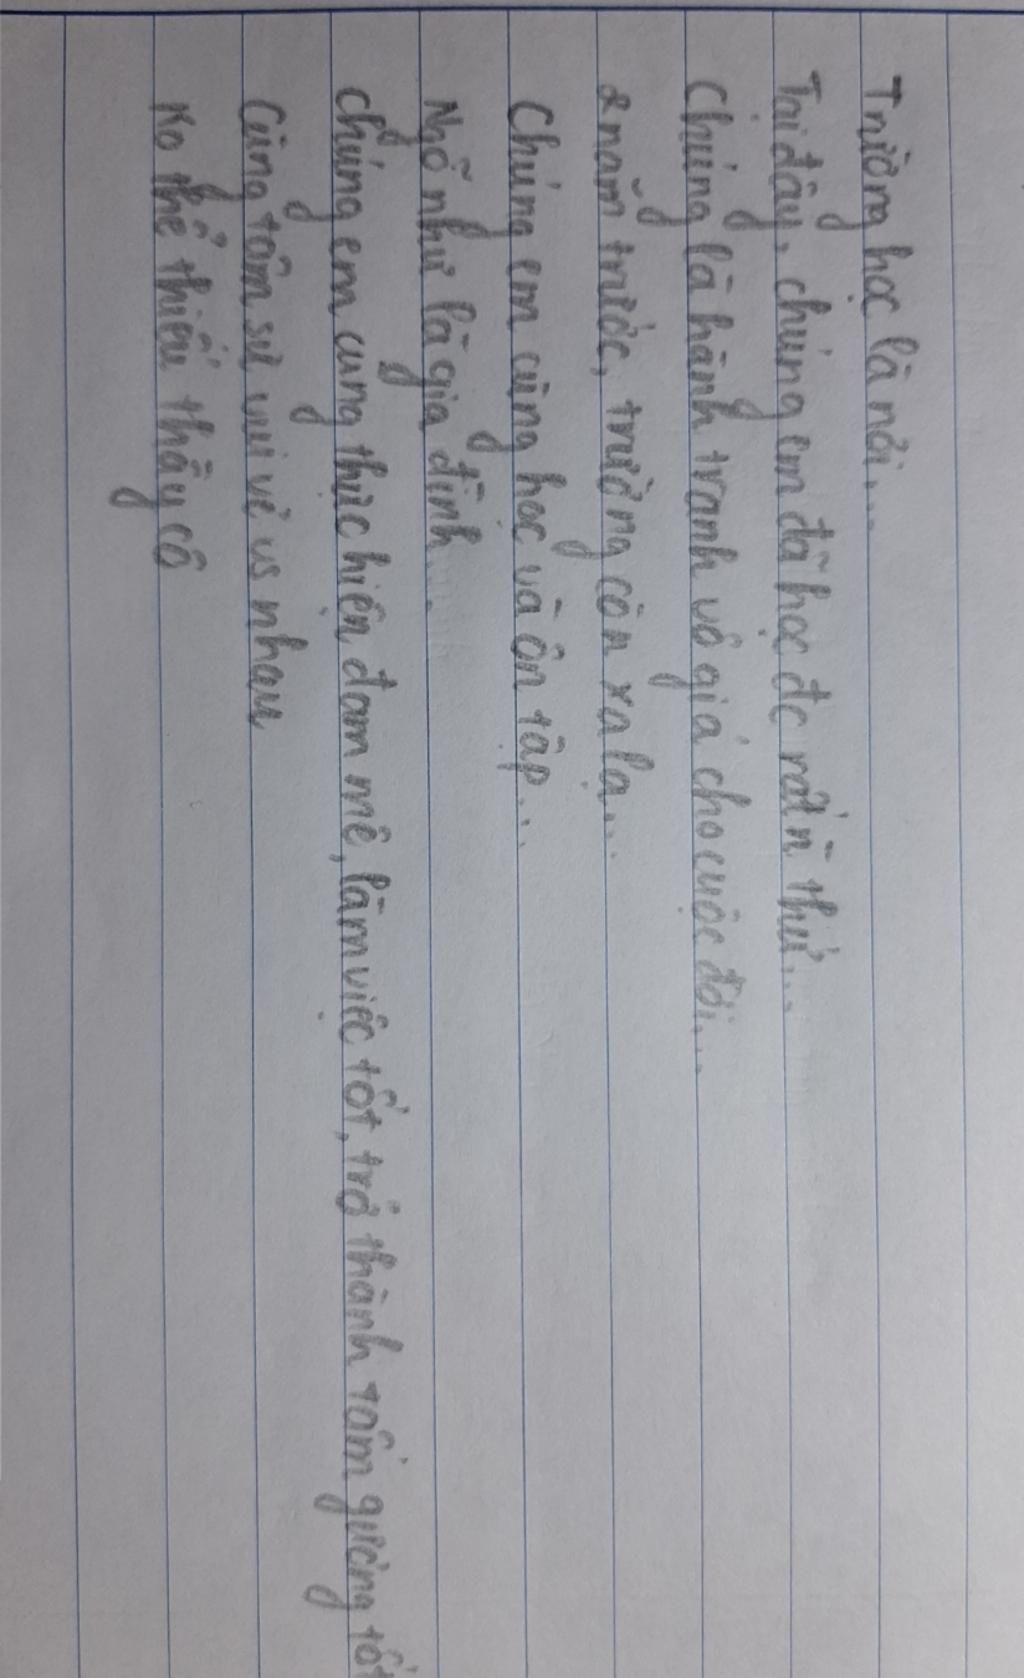 Trường học là nơi...
Tại đây, chúng em đã học đc rất n` thứ...
Chúng là hành tranh vô giá cho cuộc đời...
2 năm trước, trường còn xa lạ...
Chúng em cùng học và ôn tập...
Ngỡ như là gia đình...
Chúng em cùng thực hiện đam mê, làm việc tốt, trở thành tấm gương tốt
Cùng tâm sự vui vẻ vs nhau
Ko thể thiếu thầy cô